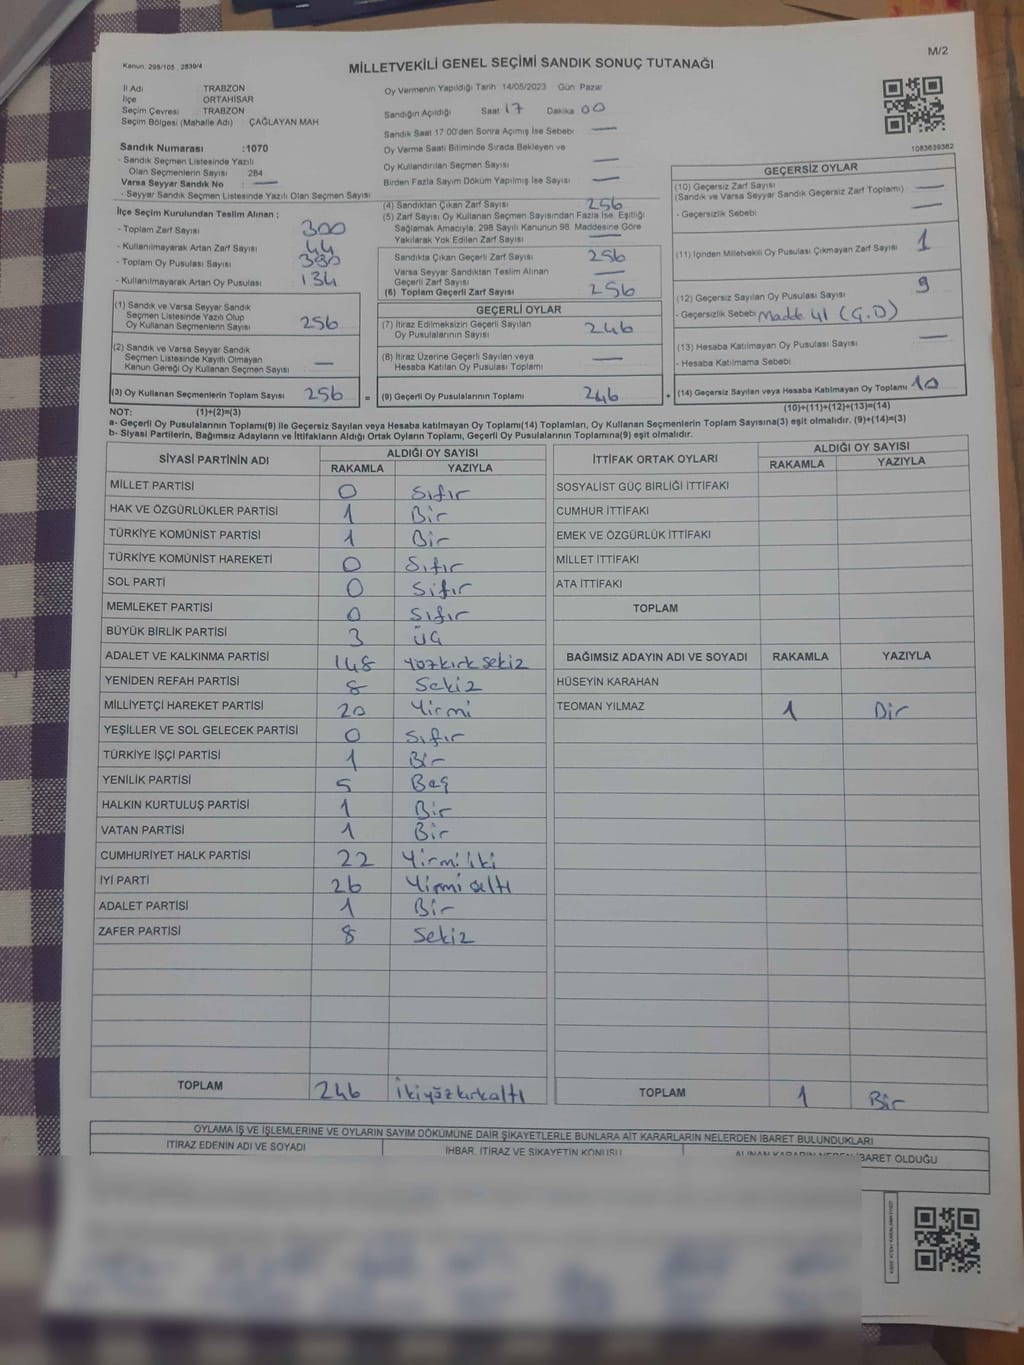 M/2
Kanun. 298/105 , 2839/4
MİLLETVEKİLİ GENEL SEÇİMİ SANDIK SONUÇ TUTANAĞI
İl Adı TRABZON
İlçe ORTAHİSAR
Seçim Çevresi TRABZON
Seçim Bölgesi (Mahalle Adı) : ÇAĞLAYAN MAH
Sandık Numarası :1070
- Sandık Seçmen Listesinde Yazılı
Olan Seçmenlerin Sayısı 284
Varsa Seyyar Sandık No : —
- Seyyar Sandık Seçmen Listesinde Yazılı Olan Seçmen Sayısı
İlçe Seçim Kurulundan Teslim Alınan ;
- Toplam Zarf Sayısı 300
- Kullanılmayarak Artan Zarf Sayısı 44
- Toplam Oy Pusulası Sayısı
- Kullanılmayarak Artan Oy Pusulası 134
(1) Sandık ve Varsa Seyyar Sandık
Seçmen Listesinde Yazılı Olup
Oy Kullanan Seçmenlerin Sayısı 256
(2) Sandık ve Varsa Seyyar Sandık
Seçmen Listesinde Kayıtlı Olmayan
Kanun Gereği Oy Kullanan Seçmen Sayısı —
(3) Oy Kullanan Seçmenlerin Toplam Sayısı 256 =
Oy Vermenin Yapıldığı Tarih 14/05/2023 Gün Pazar
Sandığın Açıldığı Saat 17 Dakika 00
Sandık Saat 17:00'den Sonra Açılmış İse Sebebi —
Oy Verme Saati Bitiminde Sırada Bekleyen ve
Oy Kullandırılan Seçmen Sayısı —
Birden Fazla Sayım Döküm Yapılmış İse Sayısı —
(4) Sandıktan Çıkan Zarf Sayısı 256
(5) Zarf Sayısı Oy Kullanan Seçmen Sayısından Fazla İse, Eşitliği
Sağlamak Amacıyla, 298 Sayılı Kanunun 98. Maddesine Göre
Yakılarak Yok Edilen Zarf Sayısı —
Sandıkta Çıkan Geçerli Zarf Sayısı 256
Varsa Seyyar Sandıktan Teslim Alınan
Geçerli Zarf Sayısı —
(6) Toplam Geçerli Zarf Sayısı 256
GEÇERLİ OYLAR
(7) İtiraz Edilmeksizin Geçerli Sayılan
Oy Pusulalarının Sayısı 246
(8) İtiraz Üzerine Geçerli Sayılan veya
Hesaba Katılan Oy Pusulası Toplamı —
(9) Geçerli Oy Pusulalarının Toplamı 246 +
1083639362
GEÇERSİZ OYLAR
(10) Geçersiz Zarf Sayısı
(Sandık ve Varsa Seyyar Sandık Geçersiz Zarf Toplamı) —
- Geçersizlik Sebebi —
(11) İçinden Milletvekili Oy Pusulası Çıkmayan Zarf Sayısı 1
(12) Geçersiz Sayılan Oy Pusulası Sayısı 9
- Geçersizlik Sebebi Madde 41 (G.D)
(13) Hesaba Katılmayan Oy Pusulası Sayısı —
- Hesaba Katılmama Sebebi
(14) Geçersiz Sayılan veya Hesaba Katılmayan Oy Toplamı 10
NOT: (1)+(2)=(3) (10)+(11)+(12)+(13)=(14)
a- Geçerli Oy Pusulalarının Toplamı(9) ile Geçersiz Sayılan veya Hesaba katılmayan Oy Toplamı(14) Toplamları, Oy Kullanan Seçmenlerin Toplam Sayısına(3) eşit olmalıdır. (9)+(14)=(3)
b- Siyasi Partilerin, Bağımsız Adayların ve İttifakların Aldığı Ortak Oyların Toplamı, Geçerli Oy Pusulalarının Toplamına(9) eşit olmalıdır.
SİYASİ PARTİNİN ADI ALDIĞI OY SAYISI
RAKAMLA YAZIYLA
MİLLET PARTİSİ 0 Sıfır
HAK VE ÖZGÜRLÜKLER PARTİSİ 1 Bir
TÜRKİYE KOMÜNİST PARTİSİ 1 Bir
TÜRKİYE KOMÜNİST HAREKETİ 0 Sıfır
SOL PARTİ 0 Sıfır
MEMLEKET PARTİSİ 0 Sıfır
BÜYÜK BİRLİK PARTİSİ 3 Üç
ADALET VE KALKINMA PARTİSİ 148 Yüzkırk sekiz
YENİDEN REFAH PARTİSİ 8 Sekiz
MİLLİYETÇİ HAREKET PARTİSİ 20 Yirmi
YEŞİLLER VE SOL GELECEK PARTİSİ 0 Sıfır
TÜRKİYE İŞÇİ PARTİSİ 1 Bir
YENİLİK PARTİSİ 5 Beş
HALKIN KURTULUŞ PARTİSİ 1 Bir
VATAN PARTİSİ 1 Bir
CUMHURİYET HALK PARTİSİ 22 Yirmi iki
İYİ PARTİ 26 Yirmi altı
ADALET PARTİSİ 1 Bir
ZAFER PARTİSİ 8 Sekiz
TOPLAM 246 ikiyüzkırkaltı
İTTİFAK ORTAK OYLARI ALDIĞI OY SAYISI
RAKAMLA YAZIYLA
SOSYALİST GÜÇ BİRLİĞİ İTTİFAKI
CUMHUR İTTİFAKI
EMEK VE ÖZGÜRLÜK İTTİFAKI
MİLLET İTTİFAKI
ATA İTTİFAKI
TOPLAM
BAĞIMSIZ ADAYIN ADI VE SOYADI RAKAMLA YAZIYLA
HÜSEYİN KARAHAN
TEOMAN YILMAZ 1 Bir
TOPLAM 1 Bir
OYLAMA İŞ VE İŞLEMLERİNE VE OYLARIN SAYIM DÖKÜMÜNE DAİR ŞİKAYETLERLE BUNLARA AİT KARARLARIN NELERDEN İBARET BULUNDUKLARI
İTİRAZ EDENİN ADI VE SOYADI İHBAR, İTİRAZ VE ŞİKAYETİN KONUSU ALINAN KARARIN NEDEN İBARET OLDUĞU